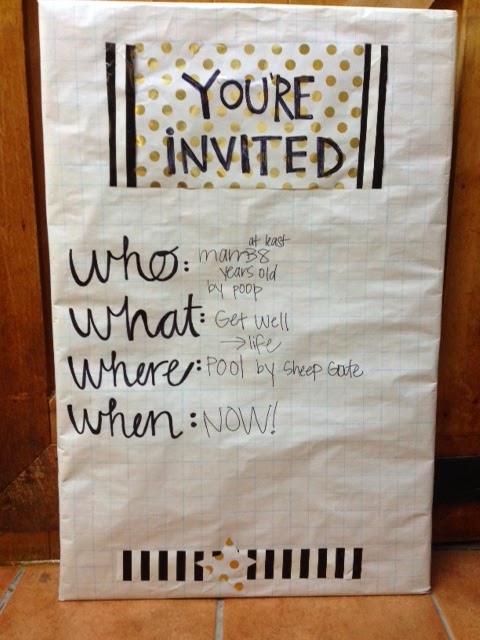 YOU'RE
iNVITED
who: man 38 at least
years old
by poop
what: Get Well
→ life
where: Pool by Sheep Gate
when: NOW!